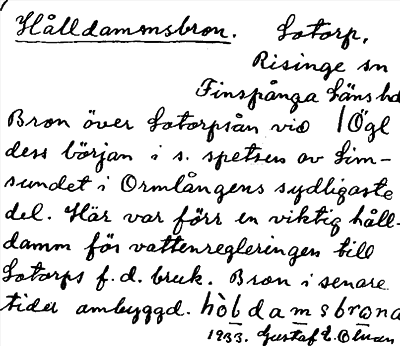 Hålldammsbron. Lotorp,
Risinge sn
Finspånga Länshd
Bron över Lotorpsån vid Ögl
dess början i s. spetsen av Lim-
sundet i Ormlångens sydligaste
del. Här var förr en viktig håll-
damm för vattenregleringen till
Lotorps f. d. bruk. Bron i senare
tider ombyggd. hòldamsbrona
1933. Gustaf E. Olman